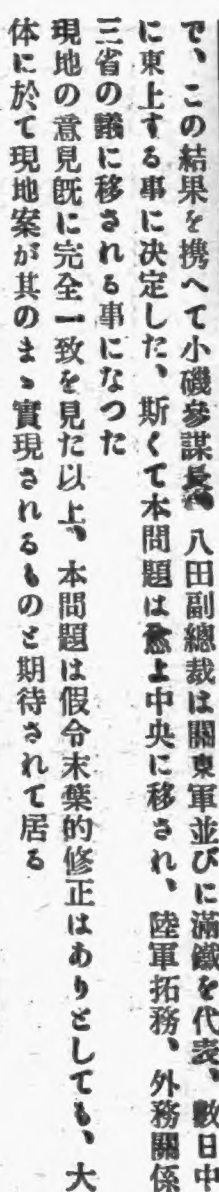 で、この結果を携へて小磯參謀長、八田副總裁は關東軍並びに滿鐵を代表、數日中
に東上する事に決定した、斯くて本問題は愈よ中央に移され、陸軍拓務、外務關係
三省の議に移される事になつた
現地の意見既に完全一致を見た以上、本問題は假令末葉的修正はありとしても、大
体に於て現地案が其のまゝ實現されるものと期待されて居る